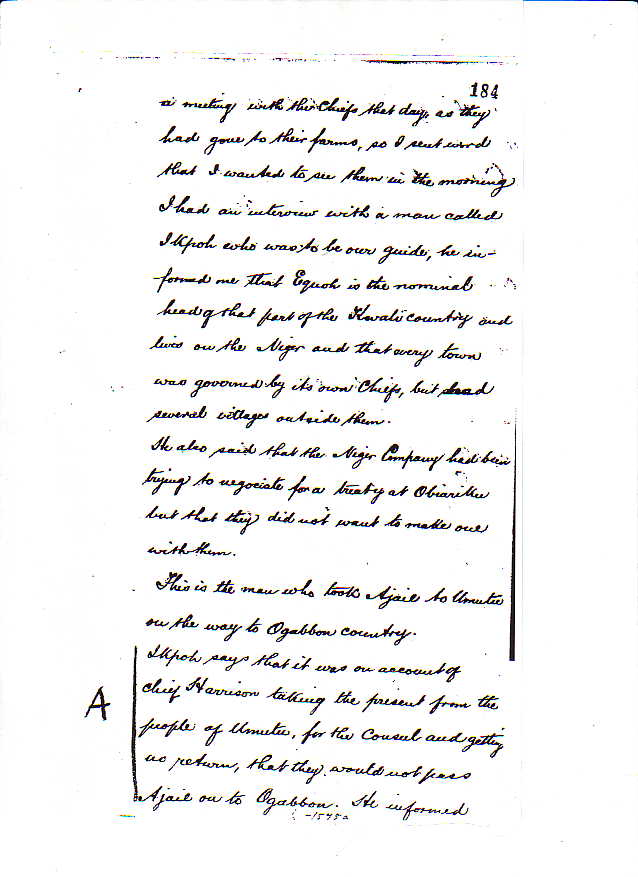 184
a meeting with the Chiefs that day, as they
had gone to their farms, so I sent word
that I wanted to see them in the morning
I had an interview with a man called
Ikpoh who was to be our guide, he in-
-formed me that Equoh is the nominal
head of that part of the Kwali country and
lives on the Niger and that every town
was governed by its own Chiefs, but had
several villages outside them.
He also said that the Niger Company had been
trying to negociate for a treaty at Obiariku
but that they did not want to make one
with them.
This is the man who took Ajaie to Umutu
on the way to Ogabbon country.
Ikpoh says that it was on account of
A
chief Harrison taking the present from the
people of Umutu, for the Consul and getting
no return, that they would not pass
Ajaie on to Ogabbon. He informed